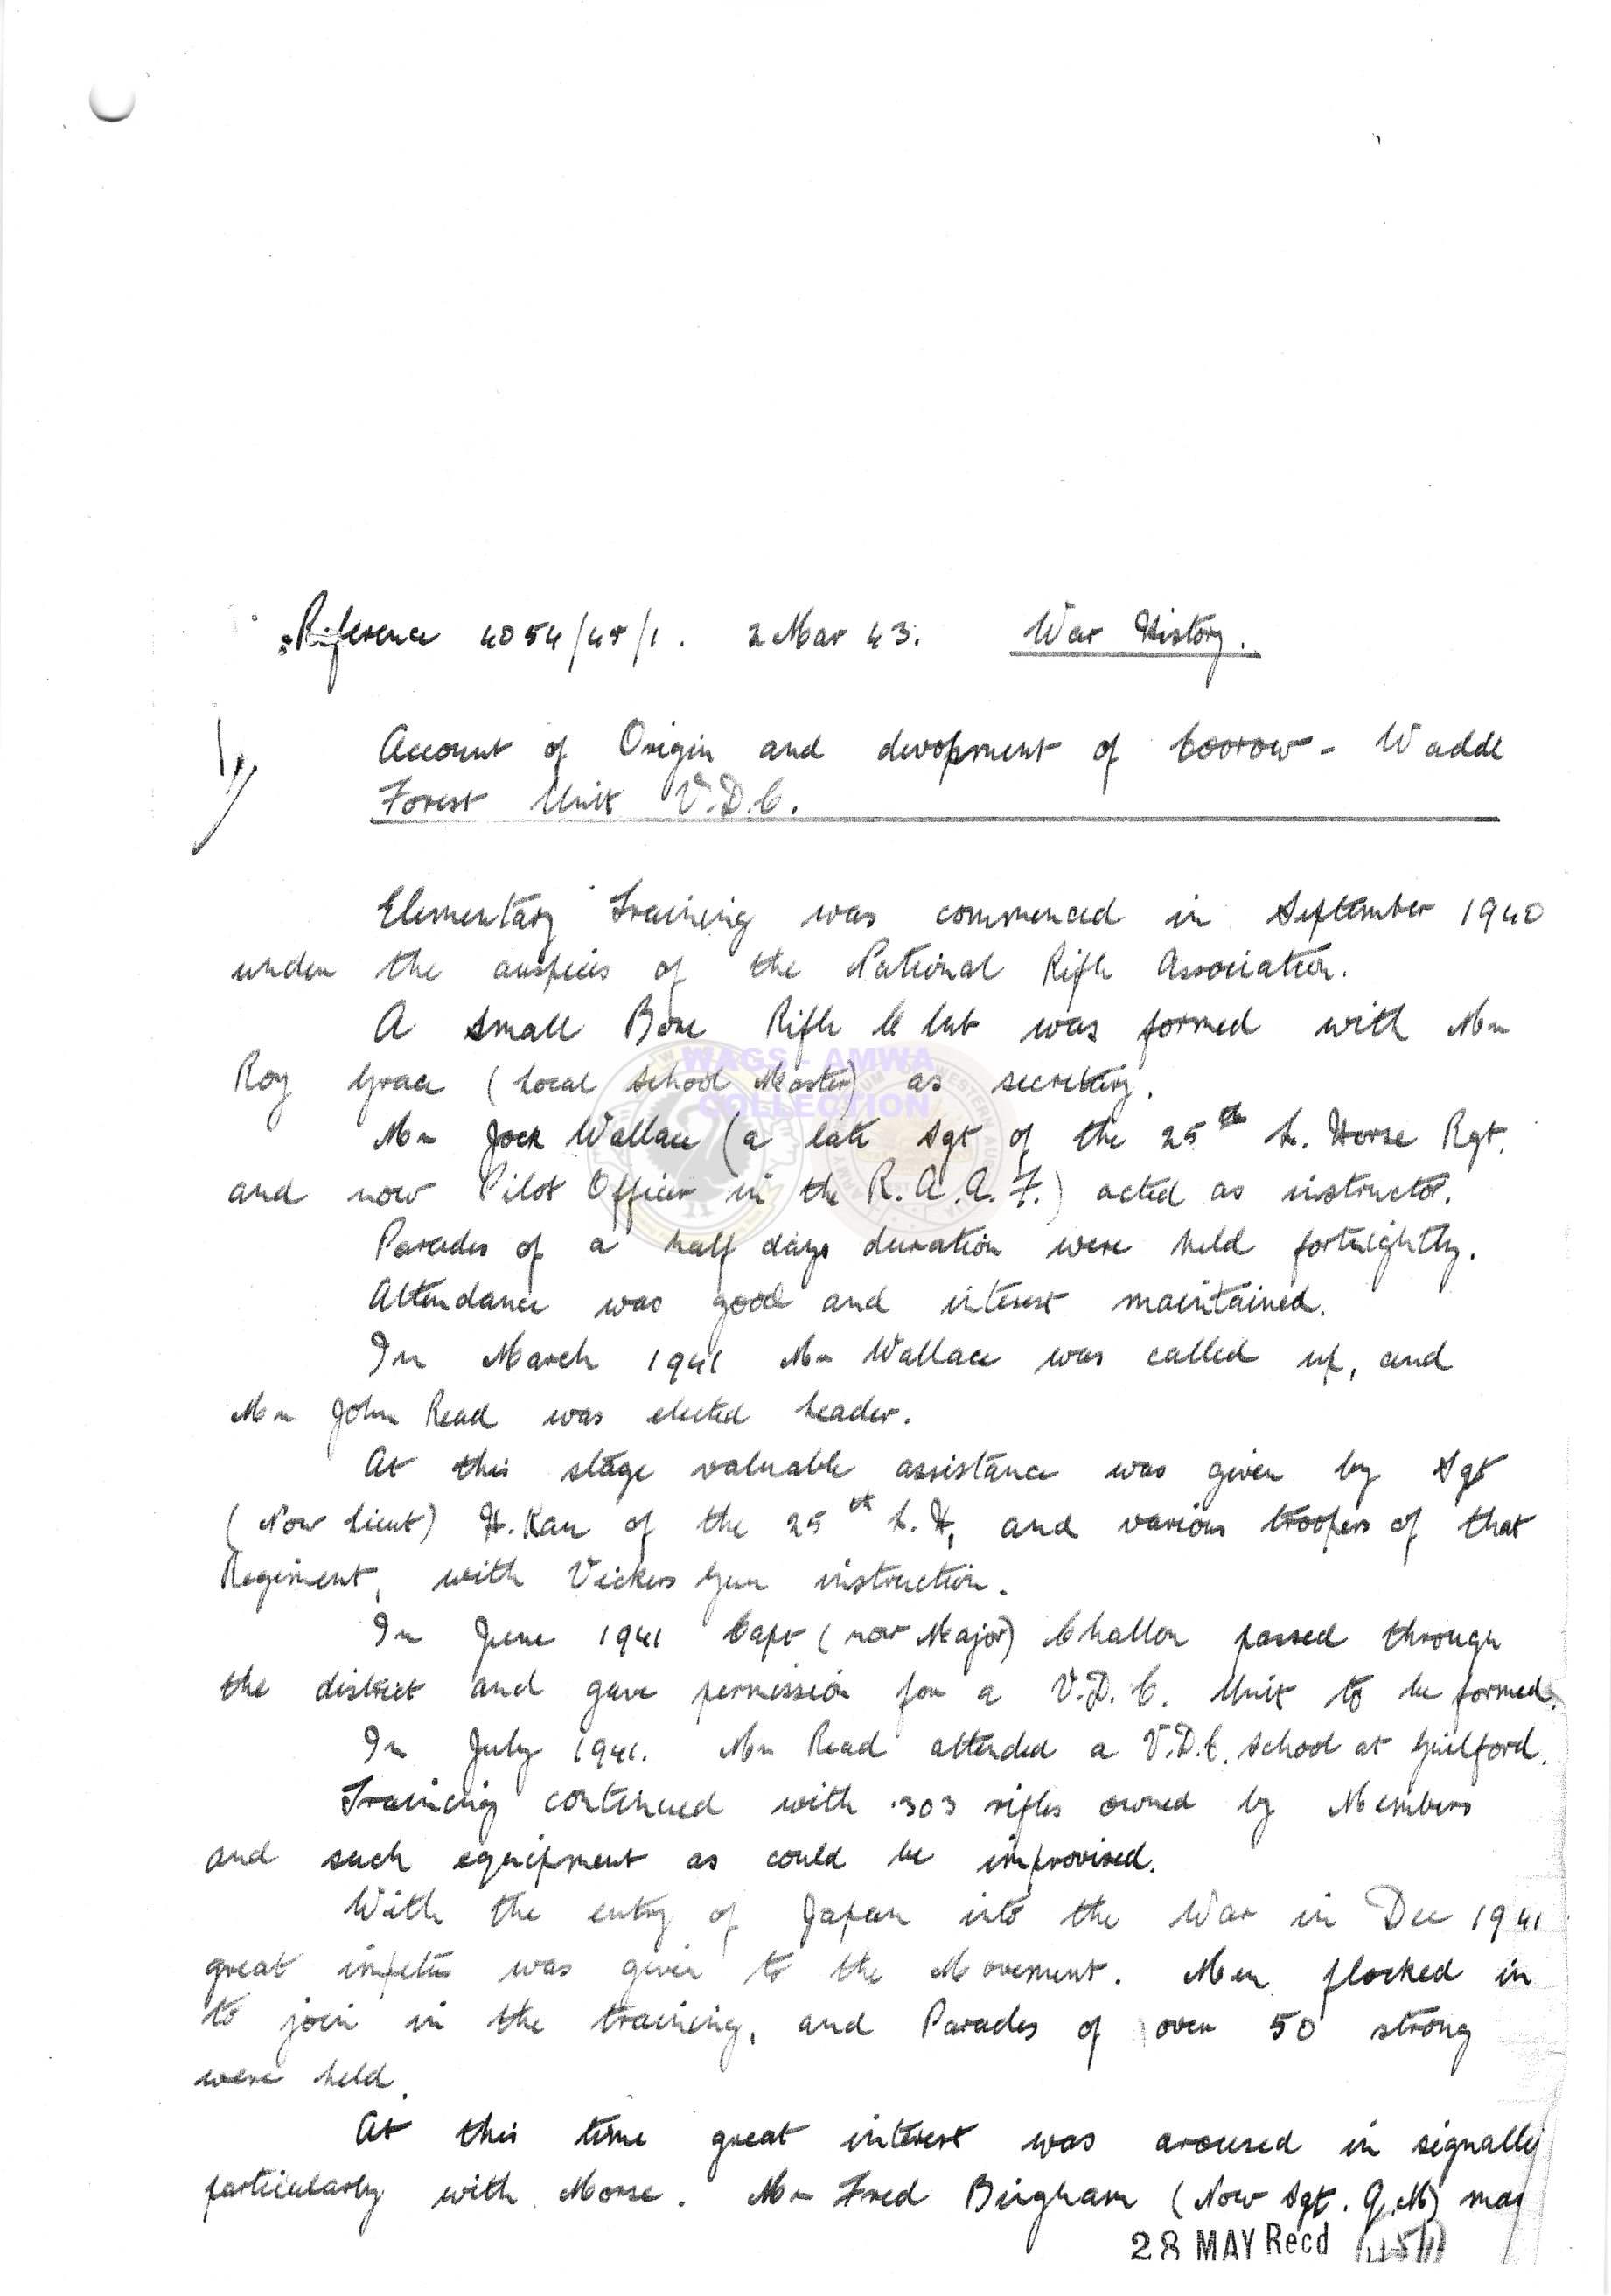 Reference 4054/45/1. 2 Mar 43. War History.
Account of Origin and devopment of Coorow - Wadde
Forest Unit V.D.C.
Elementary Training was commenced in September 1940
under the auspicis of the National Rifle Association.
A Small Bore Rifle Club was formed with Mr
Roy Grace (Local School Master) as secretary.
WAGS - AMWA
COLLECTION
Mr Jock Wallace (a late Sgt of the 25th L. Horse Rgt.
and now Pilot Officer in the R.A.A.F.) acted as instructor.
Parades of a half days duration were held fortnightly.
Attendance was good and interest maintained.
In March 1941 Mr Wallace was called up, and
Mr John Read was elected Leader.
At this stage valuable assistance was given by Sgt
(Now Lieut) H. Kau of the 25th L.H, and various troopers of that
Regiment, with Vickers Gun instruction.
In June 1941 Capt (now Major) Challen passed through
the district and gave permission for a V.D.C. Unit to be formed.
In July 1941. Mr Read attended a V.D.C. School at Guilford.
Training continued with .303 rifles owned by Members
and such equipment as could be improvised.
With the entry of Japan into the War in Dec 1941
great impetus was given to the Movement. Men flocked in
to join in the training, and Parades of over 50 strong
were held.
At this time great interest was aroused in signally
particularly with Morse. Mr Fred Bingham (Now Sgt. Q.M)
28 MAY Recd